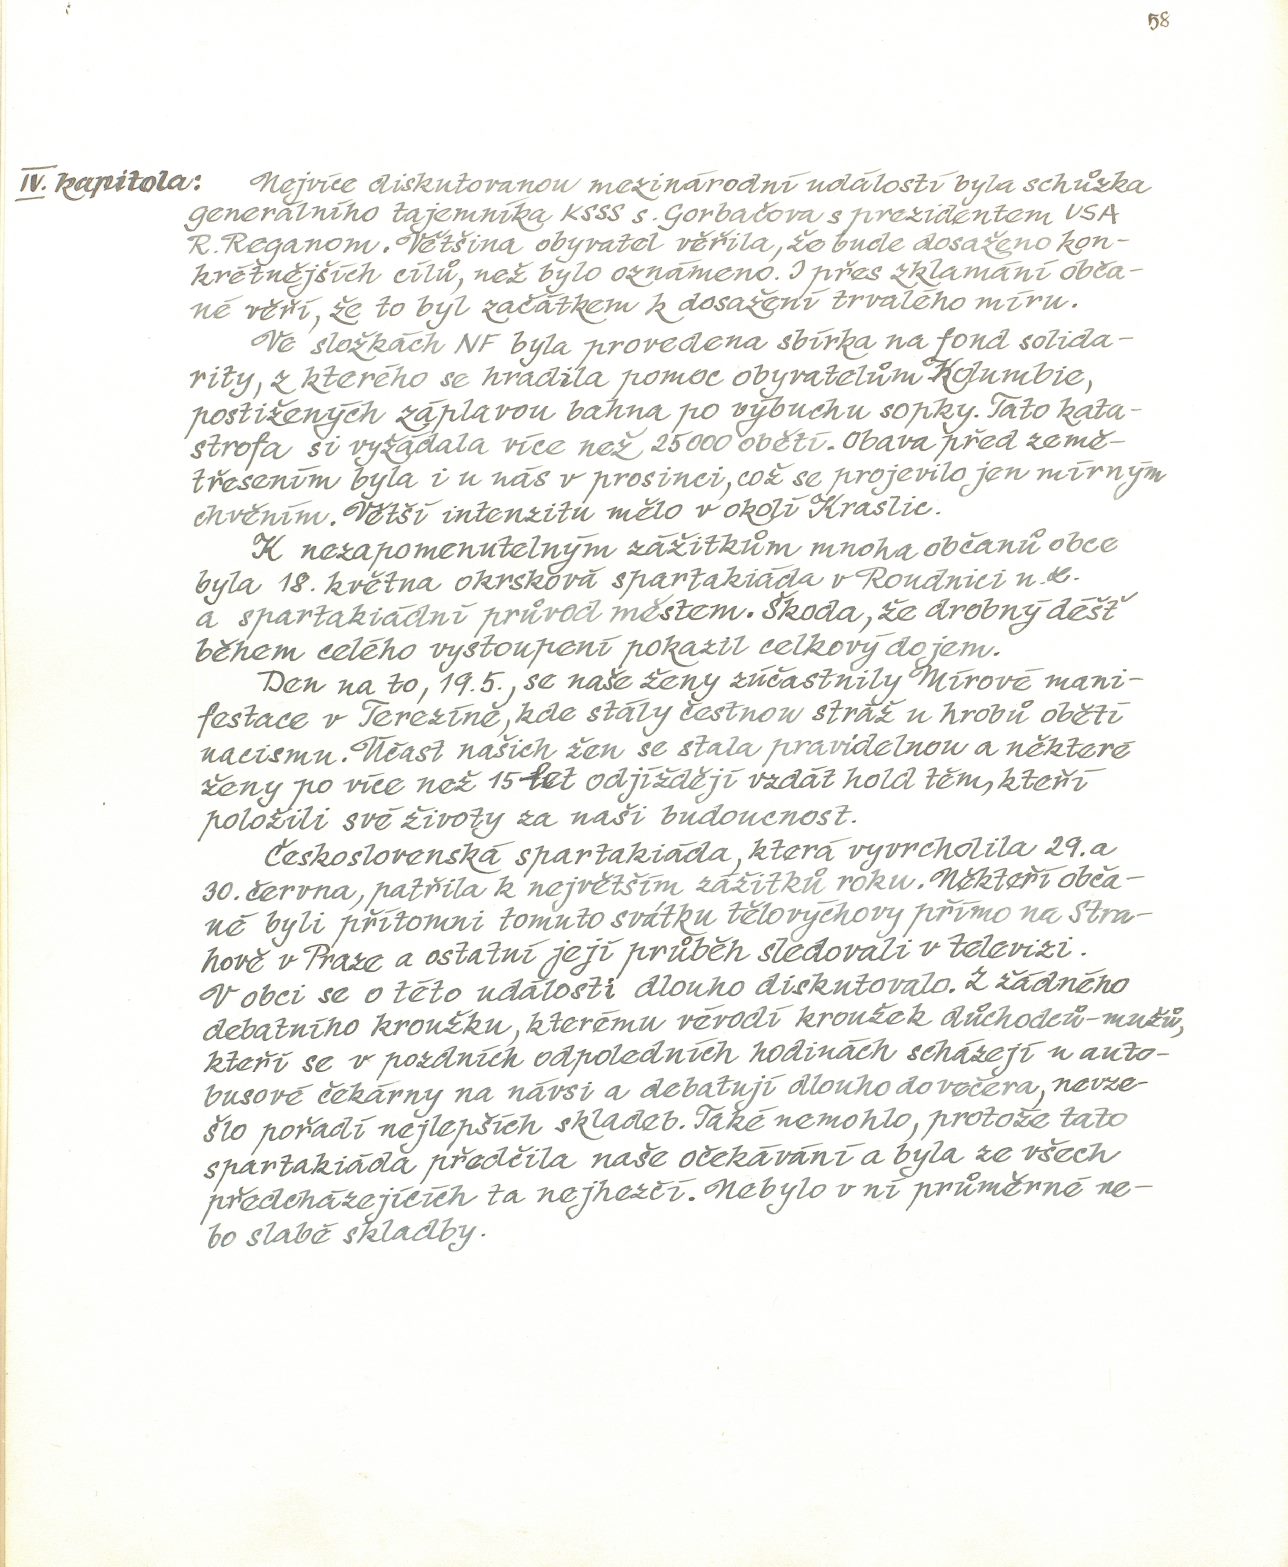 58
IV. kapitola: Nejvíce diskutovanou mezinárodní událostí byla schůzka
generálního tajemníka KSSS s. Gorbačova s prezidentem USA
R. Reganom. Většina obyvatel věřila, že bude dosaženo kon-
krétnějších cílů, než bylo oznámeno. I přes zklamání obča-
né věří, že to byl začátkem k dosažení trvalého míru.
Ve složkách NF byla provedena sbírka na fond solida-
rity, z kterého se hradila pomoc obyvatelům Kolumbie,
postižených záplavou bahna po výbuchu sopky. Tato kata-
strofa si vyžádala více než 25000 obětí. Obava před země-
třesením byla i u nás v prosinci, což se projevilo jen mírným
chvěním. Větší intenzitu mělo v okolí Kraslic.
K nezapomenutelným zážitkům mnoha občanů obce
byla 18. května okrsková spartakiáda v Roudnici n. L.
a spartakiádní průvod městem. Škoda, že drobný déšť
během celého vystoupení pokazil celkový dojem.
Den na to, 19.5., se naše ženy zúčastnily Mírové mani-
festace v Terezíně, kde stály čestnou stráž u hrobů obětí
nacismu. Účast našich žen se stala pravidelnou a některé
ženy po více než 15 let odjíždějí vzdát hold těm, kteří
položili své životy za naši budoucnost.
Československá spartakiáda, která vyvrcholila 29. a
30. června, patřila k největším zážitků roku. Někteří obča-
né byli přítomni tomuto svátku tělovýchovy přímo na Stra-
hově v Praze a ostatní její průběh sledovali v televizi.
V obci se o této události dlouho diskutovalo. Z žádného
debatního kroužku, kterému vévodí kroužek důchodců-mužů,
kteří se v pozdních odpoledních hodinách scházejí u auto-
busové čekárny na návsi a debatují dlouho do večera, nevze-
šlo pořadí nejlepších skladeb. Také nemohlo, protože tato
spartakiáda předčila naše očekávání a byla ze všech
předcházejících ta nejhezčí. Nebylo v ní průměrné ne-
bo slabé skladby.